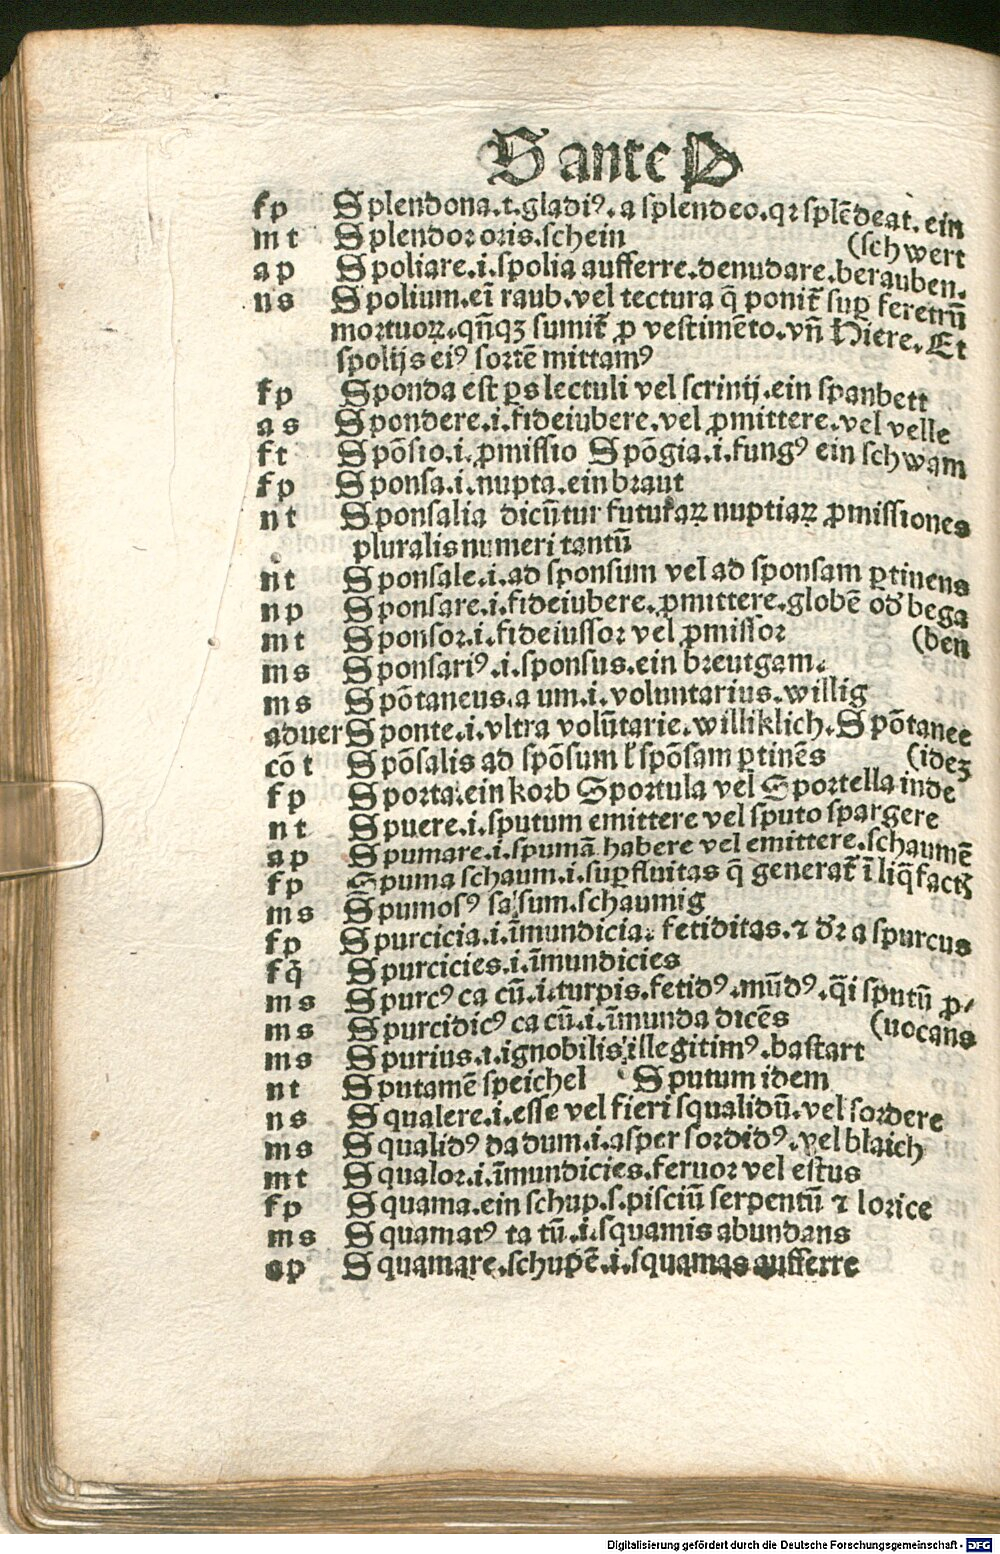 S ante P
fp Splendona.i.gladiꝰ.a splendeo.qꝛ splēdeat.ein
mt Splendor oris.schein (schwert
ap Spoliare.i.spolia aufferre.denudare.berauben.
ns Spolium.eī raub.vel tectura q̄ ponit᷑ suꝑ feretrū
mortuoꝝ.qn̄qꝫ sumit᷑ ꝓ vestimēto.vn̄ Hiere.Et
spolijs eiꝰ sortē mittamꝰ
fp Sponda est ꝑs lectuli vel scrinij.ein spanbett
as Spondere.i.fideiubere.vel ꝓmittere.vel velle
ft Spōsio.i.ꝓmissio Spōgia.i.fungꝰ ein schwam
fp Sponsa.i.nupta.ein braut
nt Sponsalia dicūtur futuraꝝ nuptiaꝝ ꝓmissiones
pluralis numeri tantū
nt Sponsale.i.ad sponsum vel ad sponsam ꝑtinens
np Sponsare.i.fideiubere.ꝓmittere.globē od᷑ bega
mt Sponsor.i.fideiussor vel ꝓmissor (ben
ms Sponsariꝰ.i.sponsus.ein breutgam.
ms Spōtaneus.a um.i.voluntarius.willig
aduer Sponte.i.vltra volūtarie.williklich.Spōtanee
cō t Spōsalis ad spōsum ł spōsam ꝑtinēs (ideꝫ
fp Sporta.ein korb Sportula vel Sportella inde
nt Spuere.i.sputum emittere vel sputo spargere
ap Spumare.i.spumā habere vel emittere.schaumē
fp Spuma schaum.i.suꝑfluitas q̄ generat᷑ ī liq̄factꝫ
ms Spumosꝰ sa sum.schaumig
fp Spurcicia.i.īmundicia. fetiditas.⁊ d᷑r a spurcus
fq̄ Spurcicies.i.īmundicies
ms Spurcꝰ ca cū.i.turpis.fetidꝰ.mūdꝰ.q̄i sputū ꝓ-
ms Spurcidicꝰ ca cū.i.īmunda dicēs (uocans
ms Spurius.i.ignobilis illegitimꝰ.bastart
nt Sputamē speichel Sputum idem
ns Squalere.i.esse vel fieri squalidū.vel sordere
ms Squalidꝰ da dum.i.asper sordidꝰ.vel blaich
mt Squalor.i.īmundicies.feruor vel estus
fp Squama.ein schup.s.pisciū serpentū ⁊ lorice
ms Squamatꝰ ta tū.i.squamis abundans
ap Squamare.schupē.i.squamas aufferre
Digitalisierung gefördert durch die Deutsche Forschungsgemeinschaft - DFG